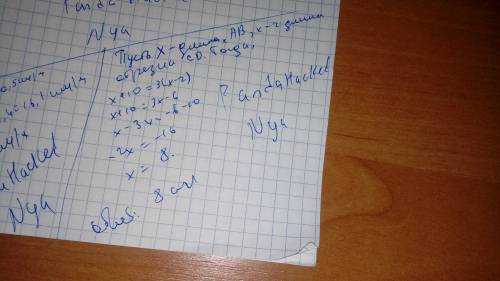 PandaHacked
Nya
0,5 см/ч
Nya
Пусть x - длина AB, x-2 длина
отрезка CD. Тогда,
x+10=3(x-2)
x+10=3x-6
x-3x=-6-10
-2x=-16
x=8.
Ответ: 8 см
PandaHacked
Nya